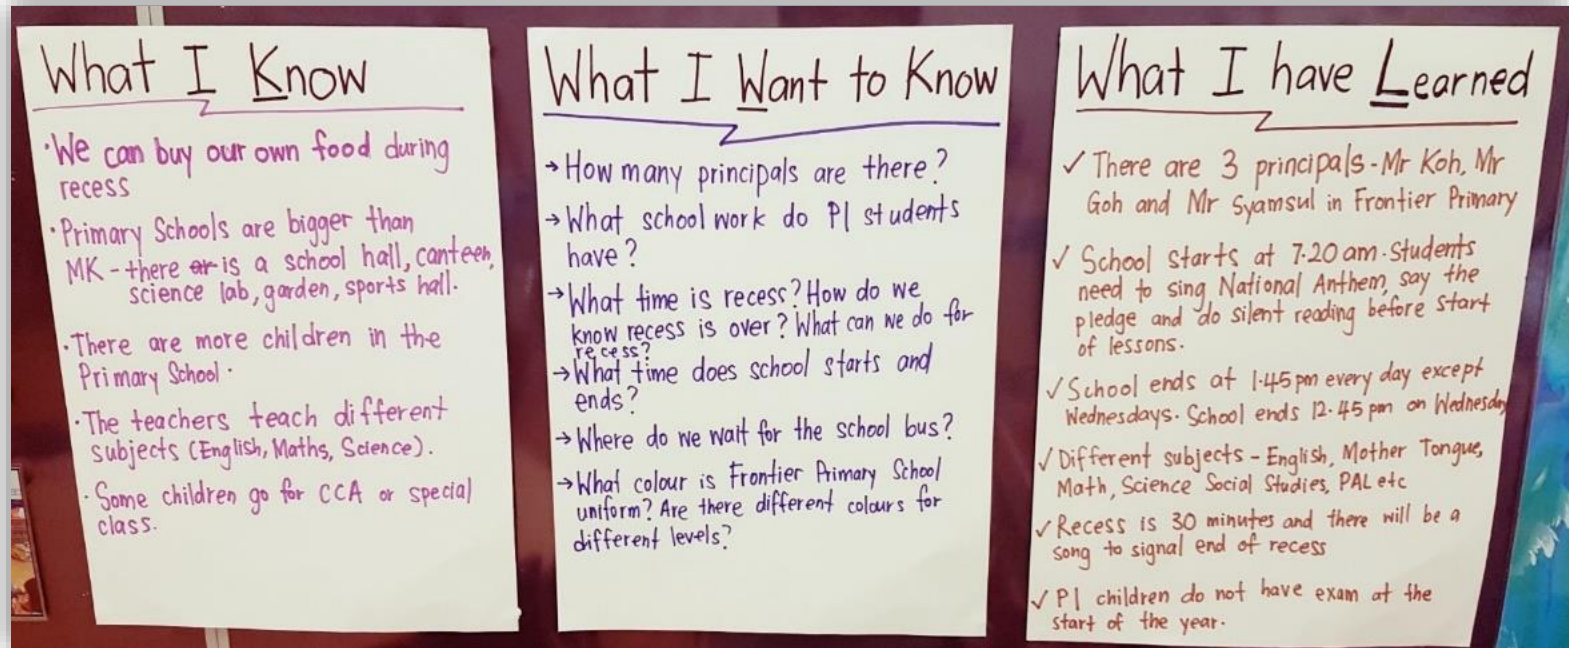 What I Know
·We can buy our own food during
recess
·Primary Schools are bigger than
MK - there ar is a school hall, canteen,
science lab, garden, sports hall.
·There are more children in the
Primary School.
·The teachers teach different
subjects (English, Maths, Science).
·Some children go for CCA or special
class.
What I Want to Know
→ How many principals are there?
→ What school work do P1 students
have?
→ What time is recess? How do we
know recess is over? What can we do for
recess?
→ What time does school starts and
ends?
→ Where do we wait for the school bus?
→ What colour is Frontier Primary School
uniform? Are there different colours for
different levels?
What I have Learned
✓ There are 3 principals - Mr Koh, Mr
Goh and Mr Syamsul in Frontier Primary
✓ School starts at 7.20 am. Students
need to sing National Anthem, say the
pledge and do silent reading before start
of lessons.
✓ School ends at 1.45 pm every day except
Wednesdays. School ends 12.45 pm on Wednesday
✓ Different subjects - English, Mother Tongue,
Math, Science Social Studies, PAL etc
✓ Recess is 30 minutes and there will be a
song to signal end of recess
✓ P1 children do not have exam at the
start of the year.